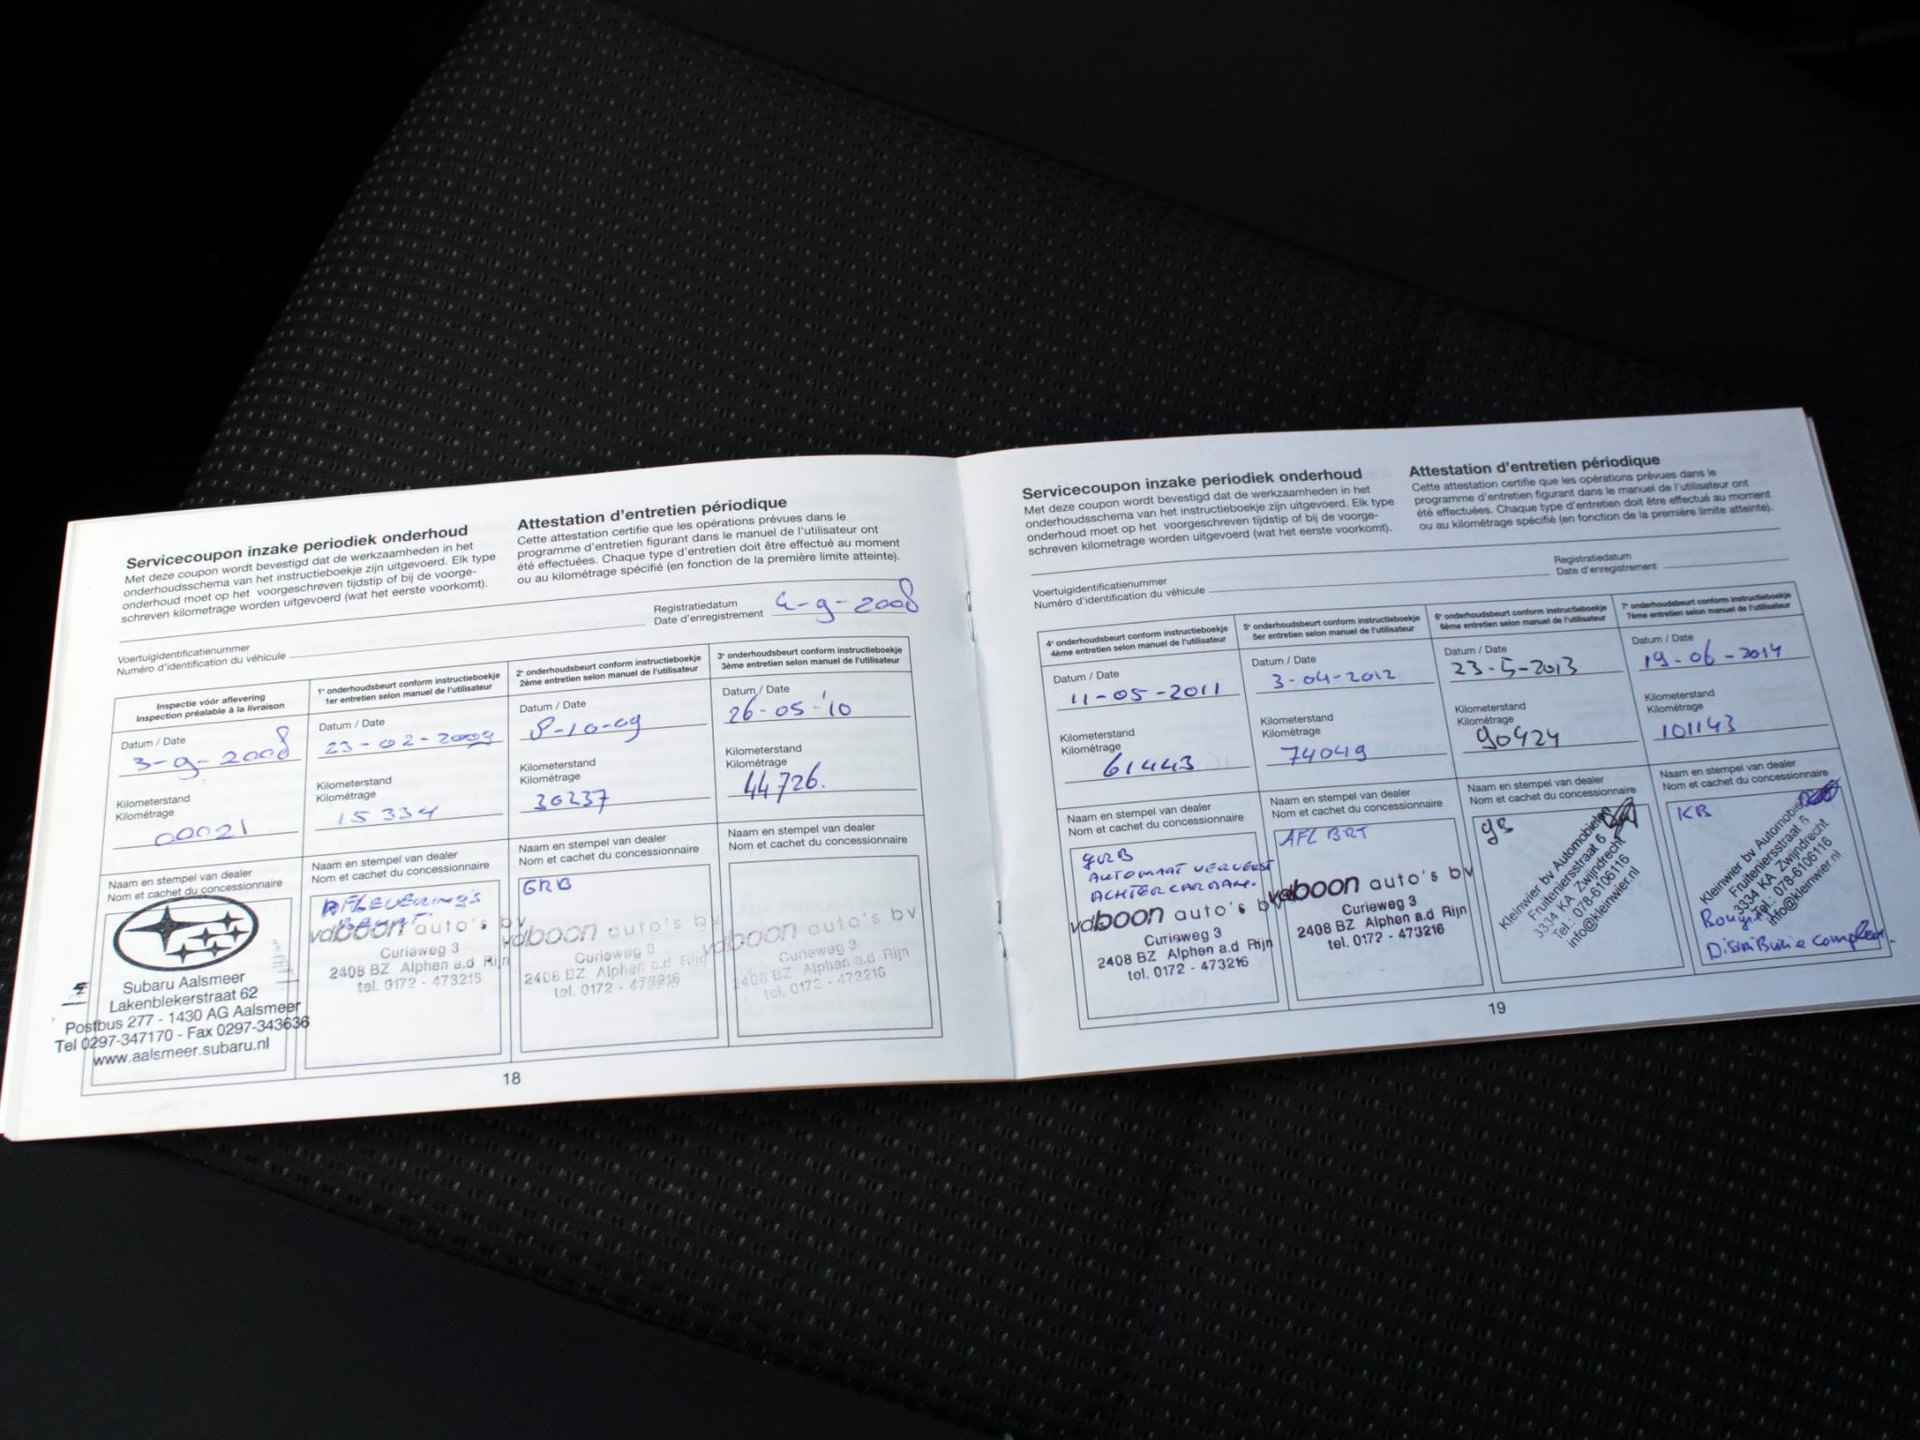 Servicecoupon inzake periodiek onderhoud
Met deze coupon wordt bevestigd dat de werkzaamheden in het
onderhoudsschema van het instructieboekje zijn uitgevoerd. Elk type
onderhoud moet op het voorgeschreven tijdstip of bij de voorge-
schreven kilometrage worden uitgevoerd (wat het eerste voorkomt).
Attestation d'entretien périodique
Cette attestation certifie que les opérations prévues dans le
programme d'entretien figurant dans le manuel de l'utilisateur ont
été effectuées. Chaque type d'entretien doit être effectué au moment
ou au kilométrage spécifié (en fonction de la première limite atteinte).
Voertuigidentificatienummer
Numéro d'identification du véhicule
Registratiedatum
Date d'enregistrement 4-9-2008
Inspectie vóór aflevering
Inspection préalable à la livraison
Datum / Date
3-9-2008
Kilometerstand
Kilométrage
00021
Naam en stempel van dealer
Nom et cachet du concessionnaire
Subaru Aalsmeer
Lakenblekerstraat 62
Postbus 277 - 1430 AG Aalsmeer
Tel 0297-347170 - Fax 0297-343636
www.aalsmeer.subaru.nl
1e onderhoudsbeurt conform instructieboekje
1er entretien selon manuel de l'utilisateur
Datum / Date
23-02-2009
Kilometerstand
Kilométrage
15334
Naam en stempel van dealer
Nom et cachet du concessionnaire
AFLEVERINGS
BEURT.
vdboon auto's bv
Curieweg 3
2408 BZ Alphen a.d Rijn
tel. 0172 - 473216
2e onderhoudsbeurt conform instructieboekje
2ème entretien selon manuel de l'utilisateur
Datum / Date
8-10-09
Kilometerstand
Kilométrage
30237
Naam en stempel van dealer
Nom et cachet du concessionnaire
GRB
vdboon auto's bv
Curieweg 3
2408 BZ Alphen a.d Rijn
tel. 0172 - 473216
3e onderhoudsbeurt conform instructieboekje
3ème entretien selon manuel de l'utilisateur
Datum / Date
26-05-'10
Kilometerstand
Kilométrage
44726.
Naam en stempel van dealer
Nom et cachet du concessionnaire
vdboon auto's bv
Curieweg 3
2408 BZ Alphen a.d Rijn
tel. 0172 - 473216
18
Servicecoupon inzake periodiek onderhoud
Met deze coupon wordt bevestigd dat de werkzaamheden in het
onderhoudsschema van het instructieboekje zijn uitgevoerd. Elk type
onderhoud moet op het voorgeschreven tijdstip of bij de voorge-
schreven kilometrage worden uitgevoerd (wat het eerste voorkomt).
Attestation d'entretien périodique
Cette attestation certifie que les opérations prévues dans le
programme d'entretien figurant dans le manuel de l'utilisateur ont
été effectuées. Chaque type d'entretien doit être effectué au moment
ou au kilométrage spécifié (en fonction de la première limite atteinte).
Voertuigidentificatienummer
Numéro d'identification du véhicule
Registratiedatum
Date d'enregistrement
4e onderhoudsbeurt conform instructieboekje
4ème entretien selon manuel de l'utilisateur
Datum / Date
11-05-2011
Kilometerstand
Kilométrage
61443
Naam en stempel van dealer
Nom et cachet du concessionnaire
GRB
AUTOMAAT VERVERST
ACHTERCARDAN.
vdboon auto's bv
Curieweg 3
2408 BZ Alphen a.d Rijn
tel. 0172 - 473216
5e onderhoudsbeurt conform instructieboekje
5er entretien selon manuel de l'utilisateur
Datum / Date
3-04-2012
Kilometerstand
Kilométrage
74049
Naam en stempel van dealer
Nom et cachet du concessionnaire
AFL BRT
vdboon auto's bv
Curieweg 3
2408 BZ Alphen a.d Rijn
tel. 0172 - 473216
6e onderhoudsbeurt conform instructieboekje
6ème entretien selon manuel de l'utilisateur
Datum / Date
23-5-2013
Kilometerstand
Kilométrage
90424
Naam en stempel van dealer
Nom et cachet du concessionnaire
gB
Kleinwier bv Automobielen
Fruiteniersstraat 6
3334 KA Zwijndrecht
Tel. 078-6106116
info@kleinwier.nl
7e onderhoudsbeurt conform instructieboekje
7ème entretien selon manuel de l'utilisateur
Datum / Date
19-06-2014
Kilometerstand
Kilométrage
101143
Naam en stempel van dealer
Nom et cachet du concessionnaire
KB
Kleinwier bv Automobielen
Fruiteniersstraat 6
3334 KA Zwijndrecht
Tel. 078-6106116
info@kleinwier.nl
Distributie compleet.
19